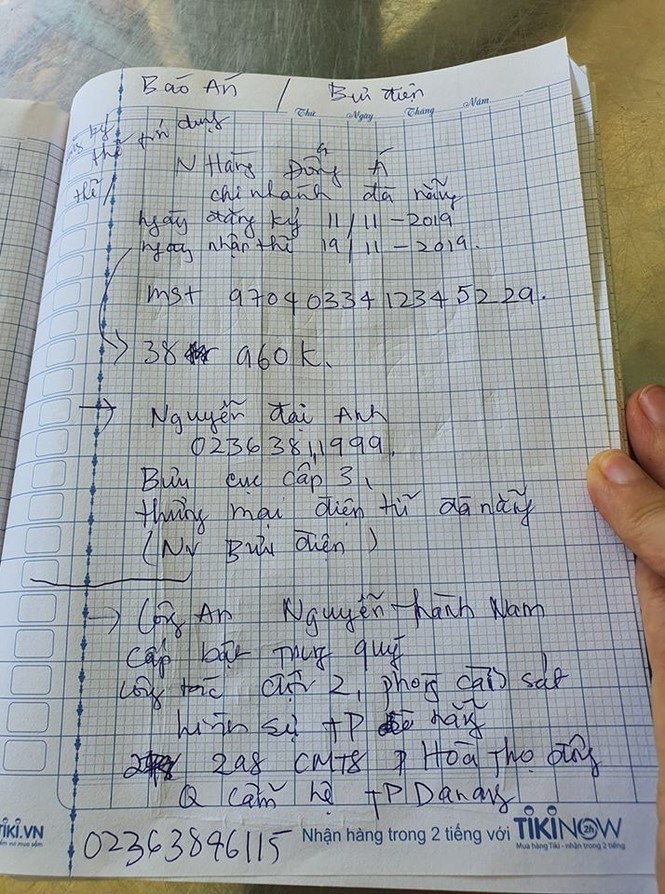 Báo Án / Bưu điện
Thứ Ngày Tháng Năm
ký thẻ tín dụng
thẻ/ N Hàng Đông Á
chi nhánh đà nẵng
ngày đăng ký 11/11-2019
ngày nhận thẻ 19/11-2019.
mst 9704 0334 1234 5229.
38 960k.
Nguyễn đại Anh
0236 381,1999,
Bưu cục cấp 3,
thương mại điện tử đà nẵng
(NV Bưu điện)
Công An Nguyễn Thành Nam
cấp bậc Trung quý
công tác đội 2, phòng cảnh sát
hình sự TP nẵng
298 CMT8 P Hòa Thọ đông
Q cẩm lệ TP Danang
02363846115
TIKI.VN
Nhận hàng trong 2 tiếng với TIKINOW 2h
Mua hàng Tiki - nhận trong 2 tiếng